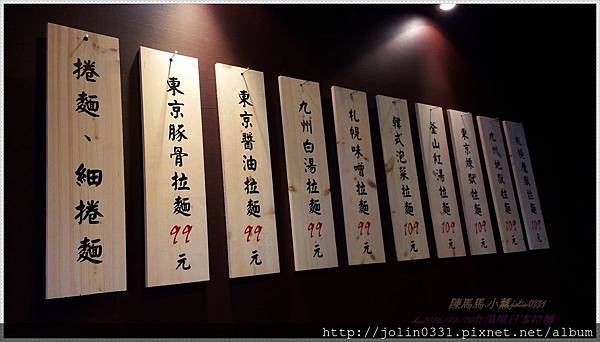 捲麵、細捲麵
東京豚骨拉麵 99元
東京醬油拉麵 99元
九州白湯拉麵 99元
札幌味噌拉麵 99元
韓式泡菜拉麵 109元
釜山紅湯拉麵 109元
東京煉獄拉麵 109元
九州地獄拉麵 109元
札幌魔獄拉麵 109元
陳馬馬.小薰jolin0331
http://jolin0331.pixnet.net/album